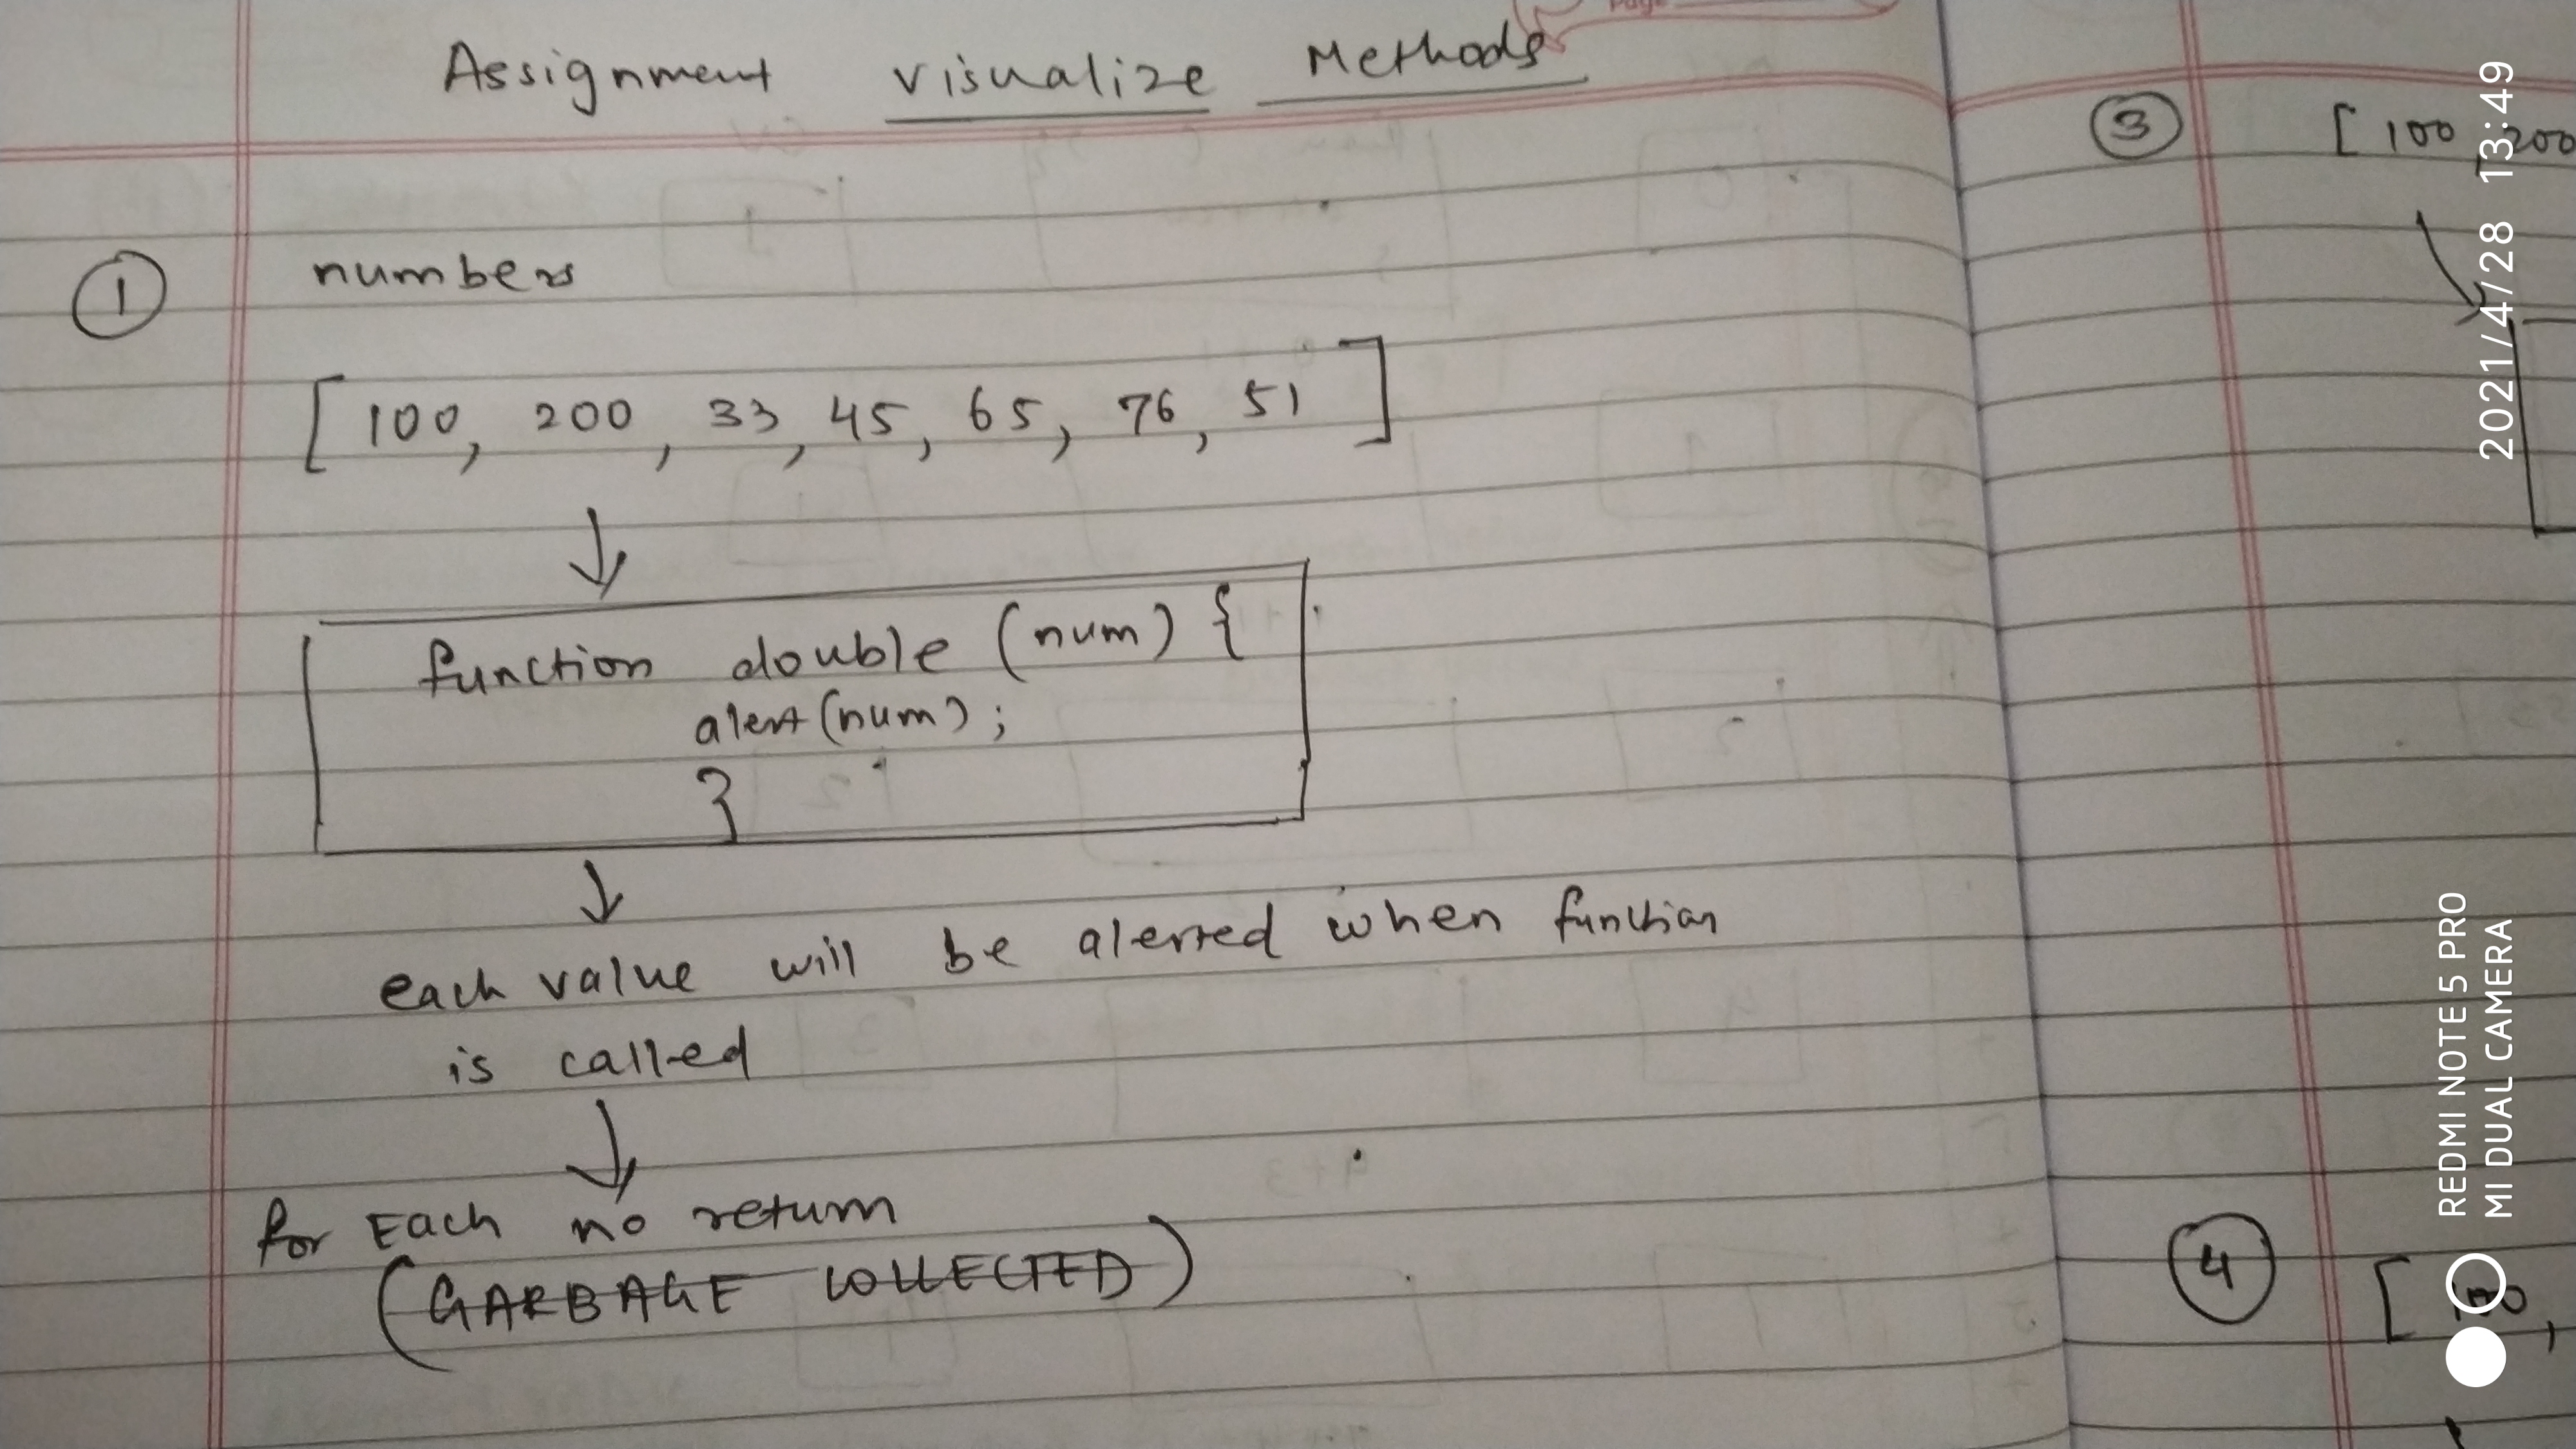 Page
Assignment visualize Methods
1 numbers
[ 100, 200, 33, 45, 65, 76, 51 ]
function double (num) {
alert(num);
}
each value will be alerted when function
is called
for Each no return
(GARBAGE COLLECTED)
3 [ 100, 200
4 [ 100,
2021/4/28 13:49
REDMI NOTE 5 PRO
MI DUAL CAMERA